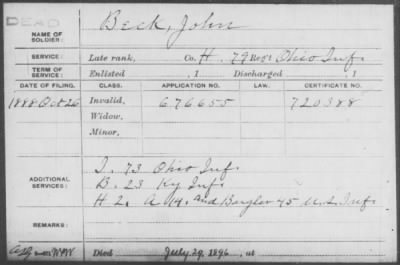 DEAD
NAME OF SOLDIER: Beck, John
SERVICE: Late rank, Co. H. 79 Reg't Ohio Inf.
TERM OF SERVICE: Enlisted , 1 Discharged , 1
DATE OF FILING. CLASS. APPLICATION NO. LAW. CERTIFICATE NO.
1888 Oct 26 Invalid, 676655 720388
Widow,
Minor,
I. 73 Ohio Inf.
ADDITIONAL SERVICES: B. 23 Ky Inf.
H 2. A H. and Bugler 45 U.S. Inf.
REMARKS:
Died July 29, 1896, at